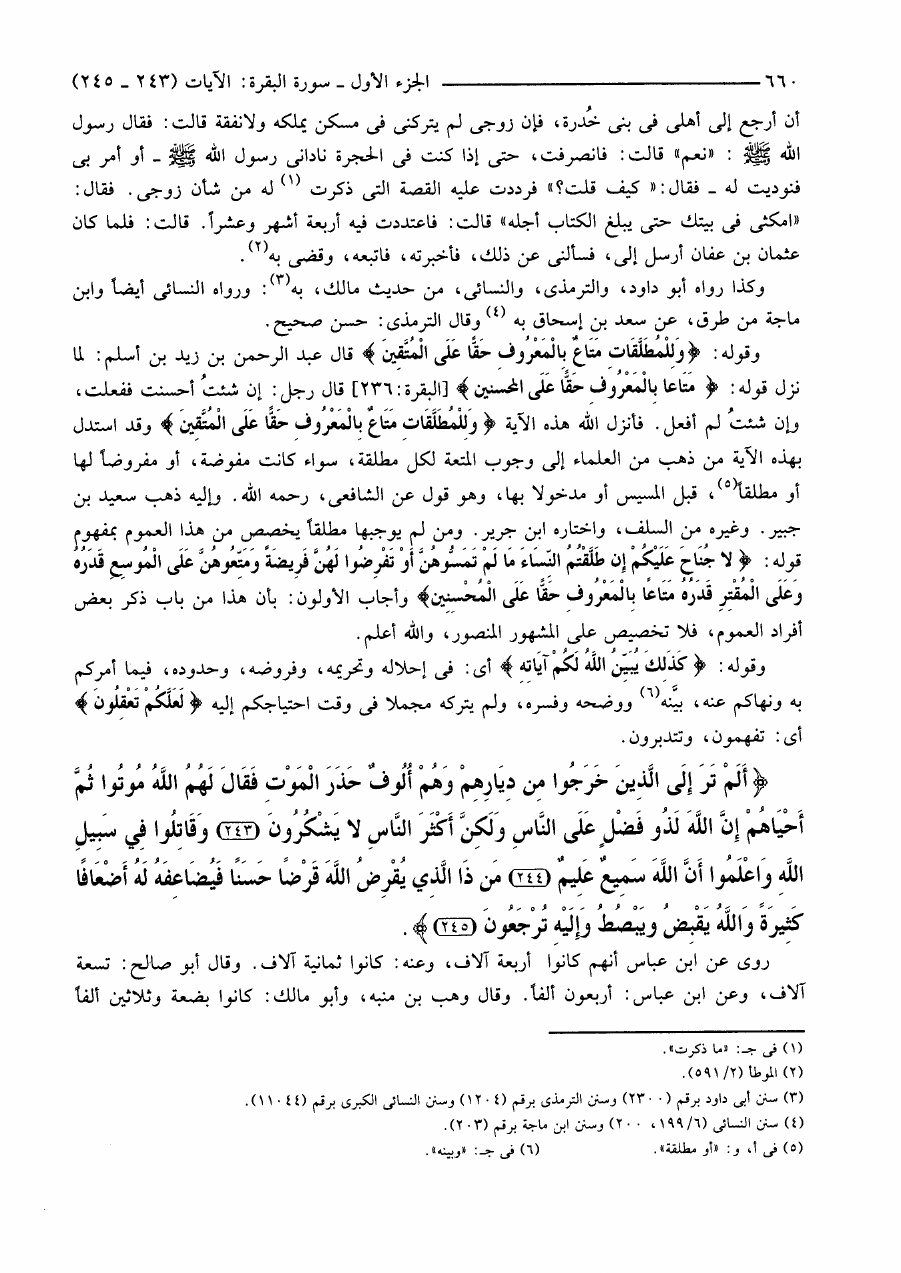 ٦٦٠ ــــــــــــــــــــ الجزء الأول ـ سورة البقرة: الآيات (٢٤٣ ـ ٢٤٥)
أن أرجع إلى أهلى فى بنى خُدرة، فإن زوجى لم يتركنى فى مسكن يملكه ولانفقة قالت: فقال رسول
الله ﷺ : «نعم» قالت: فانصرفت، حتى إذا كنت فى الحجرة نادانى رسول الله ﷺ ـ أو أمر بى
فنوديت له ـ فقال:« كيف قلت؟» فرددت عليه القصة التى ذكرت (١) له من شأن زوجى. فقال:
«امكثى فى بيتك حتى يبلغ الكتاب أجله» قالت: فاعتددت فيه أربعة أشهر وعشراً. قالت: فلما كان
عثمان بن عفان أرسل إلى، فسألنى عن ذلك، فأخبرته، فاتبعه، وقضى به(٢).
وكذا رواه أبو داود، والترمذى، والنسائى، من حديث مالك، به(٣): ورواه النسائى أيضاً وابن
ماجة من طرق، عن سعد بن إسحاق به (٤) وقال الترمذى: حسن صحيح.
وقوله: ﴿وَلِلْمُطَلَّقَاتِ مَتَاعٌ بِالْمَعْرُوفِ حَقًّا عَلَى الْمُتَّقِينَ ﴾ قال عبد الرحمن بن زيد بن أسلم: لما
نزل قوله: ﴿ مَتَاعا بِالْمَعْرُوفِ حَقًّا عَلَى المحسنين ﴾ [البقرة:٢٣٦] قال رجل: إن شئتُ أحسنت ففعلت،
وإن شئتُ لم أفعل. فأنزل الله هذه الآية ﴿ وَلِلْمُطَلَّقَاتِ مَتَاعٌ بِالْمَعْرُوفِ حَقًّا عَلَى الْمُتَّقِينَ ﴾ وقد استدل
بهذه الآية من ذهب من العلماء إلى وجوب المتعة لكل مطلقة، سواء كانت مفوضة، أو مفروضاً لها
أو مطلقاً(٥)، قبل المسيس أو مدخولا بها، وهو قول عن الشافعى، رحمه الله. وإليه ذهب سعيد بن
جبير. وغيره من السلف، واختاره ابن جرير. ومن لم يوجبها مطلقاً يخصص من هذا العموم بمفهوم
قوله: ﴿ لا جُنَاحَ عَلَيْكُمْ إِن طَلَّقْتُمُ النِّسَاءَ مَا لَمْ تَمَسُّوهُنَّ أَوْ تَفْرِضُوا لَهُنَّ فَرِيضَةً وَمَتِّعُوهُنَّ عَلَى الْمُوسِعِ قَدَرُهُ
وَعَلَى الْمُقْتِرِ قَدَرُهُ مَتَاعًا بِالْمَعْرُوفِ حَقًّا عَلَى الْمُحْسِنِينَ﴾ وأجاب الأولون: بأن هذا من باب ذكر بعض
أفراد العموم، فلا تخصيص على المشهور المنصور، والله أعلم.
وقوله: ﴿ كَذَلِكَ يُبَيِّنُ اللَّهُ لَكُمْ آيَاتِهِ ﴾ أى: فى إحلاله وتحريمه، وفروضه، وحدوده، فيما أمركم
به ونهاكم عنه، بيَّنه(٦) ووضحه وفسره، ولم يتركه مجملا فى وقت احتياجكم إليه ﴿ لَعَلَّكُمْ تَعْقِلُونَ ﴾
أى: تفهمون، وتتدبرون.
﴿ أَلَمْ تَرَ إِلَى الَّذِينَ خَرَجُوا مِن دِيَارِهِمْ وَهُمْ أُلُوفٌ حَذَرَ الْمَوْتِ فَقَالَ لَهُمُ اللَّهُ مُوتُوا ثُمَّ
أَحْيَاهُمْ إِنَّ اللَّهَ لَذُو فَضْلٍ عَلَى النَّاسِ وَلَكِنَّ أَكْثَرَ النَّاسِ لا يَشْكُرُونَ (٢٤٣) وَقَاتِلُوا فِي سَبِيلِ
اللَّهِ وَاعْلَمُوا أَنَّ اللَّهَ سَمِيعٌ عَلِيمٌ (٢٤٤) مَن ذَا الَّذِي يُقْرِضُ اللَّهَ قَرْضًا حَسَنًا فَيُضَاعِفَهُ لَهُ أَضْعَافًا
كَثِيرَةً وَاللَّهُ يَقْبِضُ وَيَبْصُطُ وَإِلَيْهِ تُرْجَعُونَ (٢٤٥) ﴾.
روى عن ابن عباس أنهم كانوا أربعة آلاف، وعنه: كانوا ثمانية آلاف. وقال أبو صالح: تسعة
آلاف، وعن ابن عباس: أربعون ألفاً. وقال وهب بن منبه، وأبو مالك: كانوا بضعة وثلاثين ألفاً
(١) فى جـ: «ما ذكرت».
(٢) الموطأ (٥٩١/٢).
(٣) سنن أبى داود برقم (٢٣٠٠) وسنن الترمذى برقم (١٢٠٤) وسنن النسائى الكبرى برقم (١١٠٤٤).
(٤) سنن النسائى (١٩٩/٦، ٢٠٠) وسنن ابن ماجة برقم (٢٠٣).
(٥) فى أ، و: «أو مطلقة». (٦) فى جـ: «وبينه».